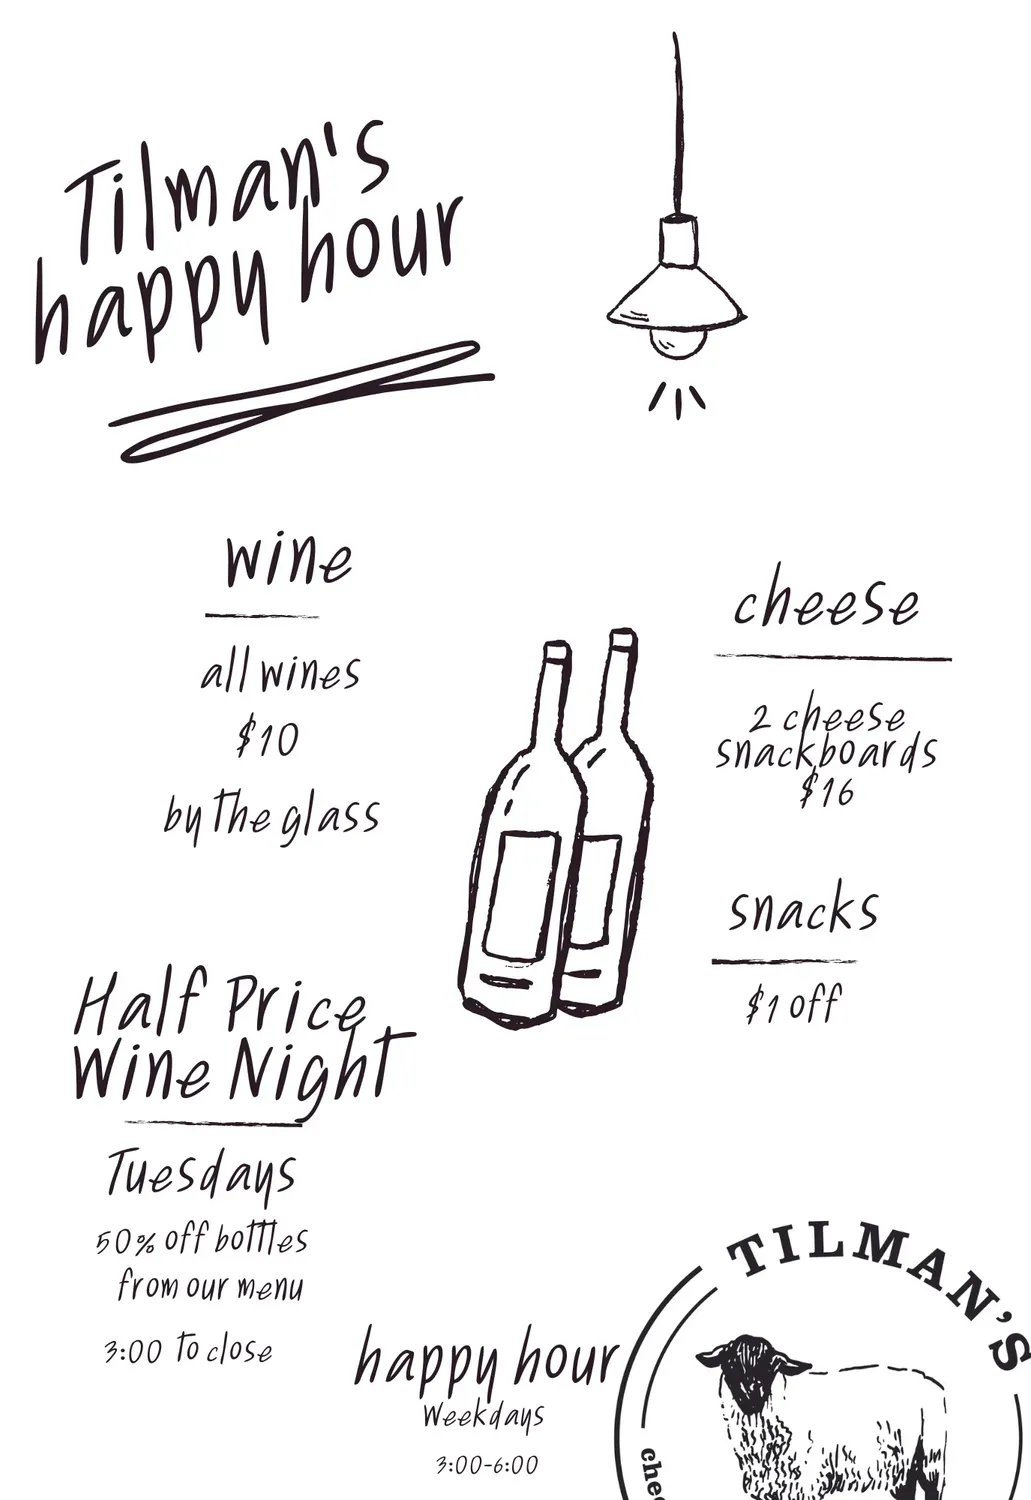 Tilman's
happy hour
wine
all wines
$10
by the glass
cheese
2 cheese
snackboards
$16
snacks
$1 off
Half Price
Wine Night
Tuesdays
50% off bottles
from our menu
3:00 to close
happy hour
Weekdays
3:00-6:00
TILMAN'S